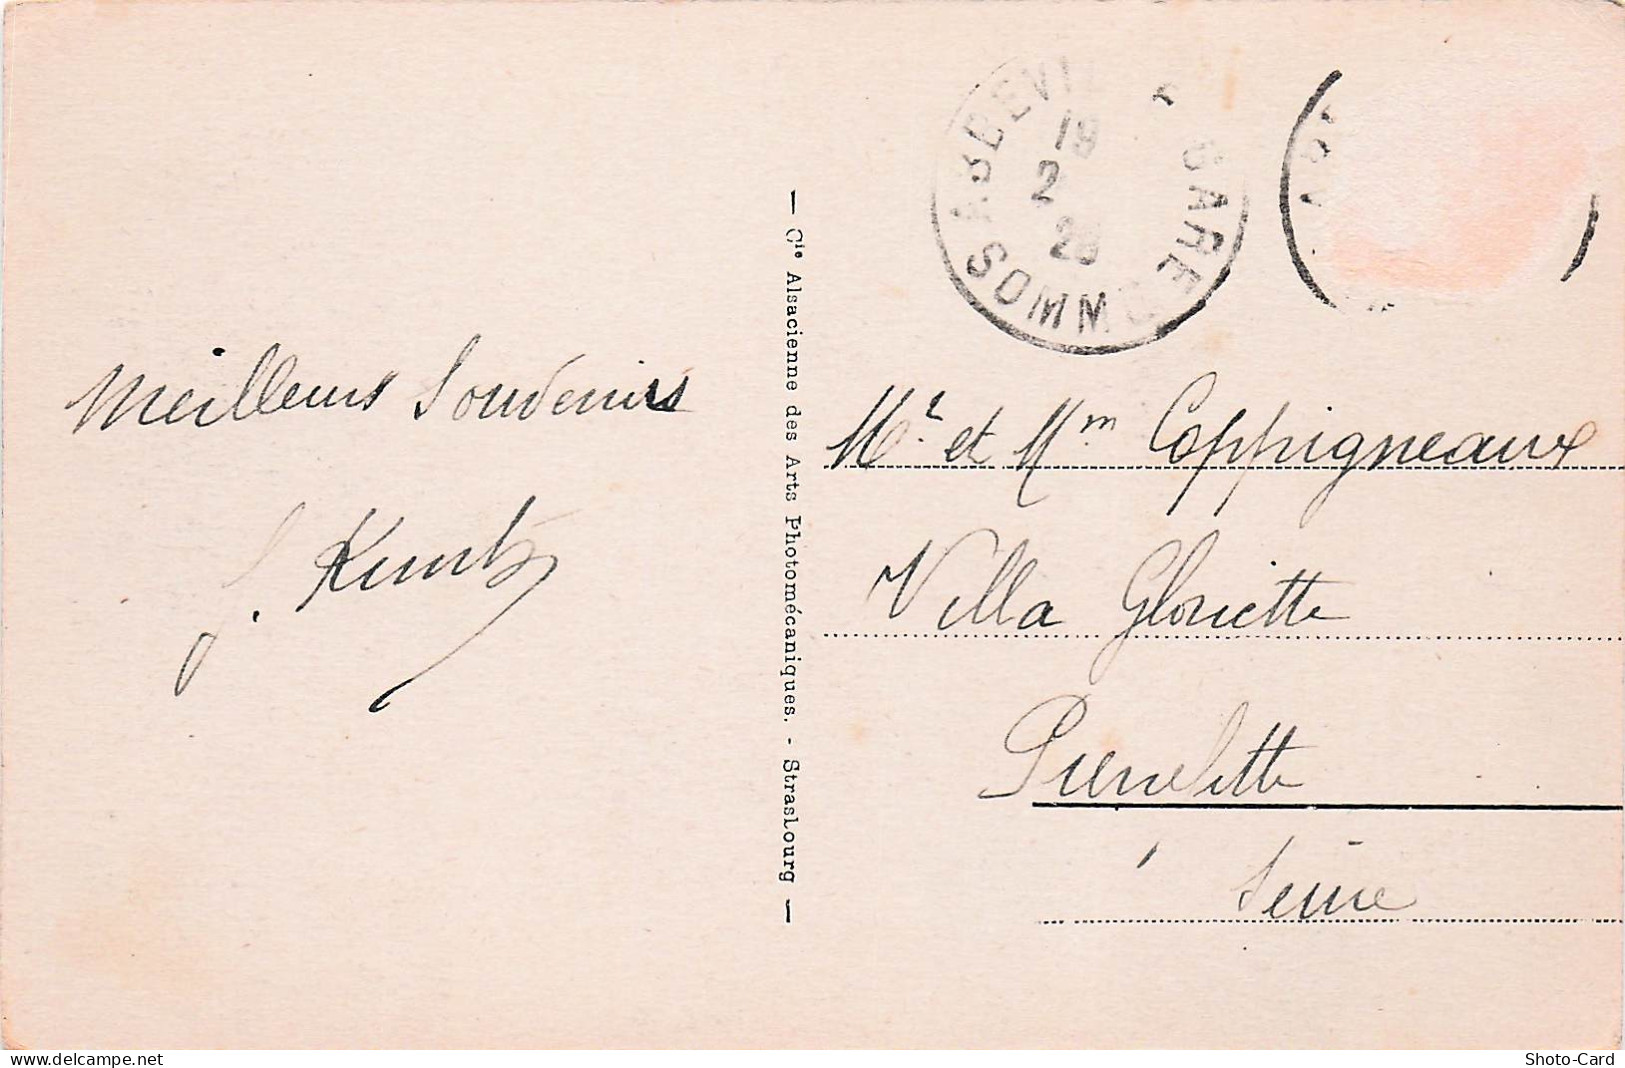 ABBEVIL
GARE
19
2
28
SOMME
Meilleurs Souvenirs
J. Kuntz
— Cie Alsacienne des Arts Photomécaniques. - Strasbourg —
Mr et Mm Coppigneaux
Villa Gloriette
Pierrefitte
Seine
www.delcampe.net
Shoto-Card